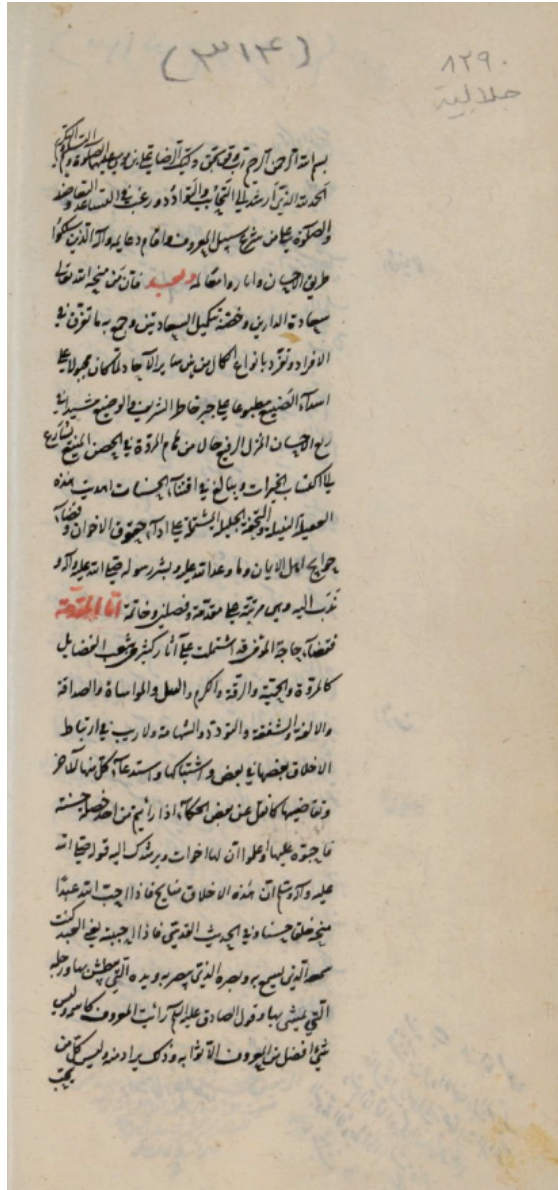 (٣١٤)
٨٢٩٠
جلالية
بسم الله الرحمن الرحيم
الحمد لله الذي ارشد الى التحابب والتوادد ورغب في التساعد والتعاضد
والصلوة على من شرع سبيل المعروف واقام دعايمه وآله الذين سلكوا
طريق الاحسان وانا روا معالمه وبعد فان من منحه الله تعالى
سعادة الدارين وخصه بتكميل السعادتين وجمع به ما تفرق في
الافراد وتفرد بانواع الكمال من بين ساير الآحاد لما كان مجبولا على
اسداء الصنيع مطبوعا على جبر خاطر الشريف والوضيع مشيدا في
ربع الاحسان المنزل الرفيع حال من المروة في الحصن المنيع يسارع
الى اكتساب الخيرات ويبالغ في اقتناء الحسنات اهديت هذه
النبيلة والتحفة الجليلة المشتملة على اداء حقوق الاخوان وقضاء
حوايج اهل الايمان وما وعد الله عليه وبشر رسوله صلى الله عليه وآله و
ندب اليه وهي مرتبة على مقدمة وفصلين وخاتمة اما المقدمة
فقضاء حاجة المؤمن قد اشتملت على آثار كثيرة من شعب الفضايل
كالمروة والحمية والرقة والكرم والعدل والمواساة والصداقة
والالفة والشفقة والتودد والشهامة ولا ريب في ارتباط
الاخلاق بعضها في بعض واشتباكها واستدعاء كل منها الآخر
وتقاضيها كما نقل عن بعض الحكماء اذا رأيتم من احد خصلة حسنة
فارجوه عليها واعلموا ان لها اخوات ويرشدك اليه قوله صلى الله
عليه وآله وسلم ان هذه الاخلاق منايح فاذا احب الله عبدا
منحه خلقا حسنا وفي الحديث القدسي فاذا احببته يعني العبد كنت
سمعه الذي يسمع به وبصره الذي يبصر به ويده التي يبطش بها ورجله
التي يمشي بها وقول الصادق عليه السلام رأيت المعروف كاسمه وليس
شيء افضل من المعروف الا ثوابه وذلك يراد منه وليس كل من
يحب